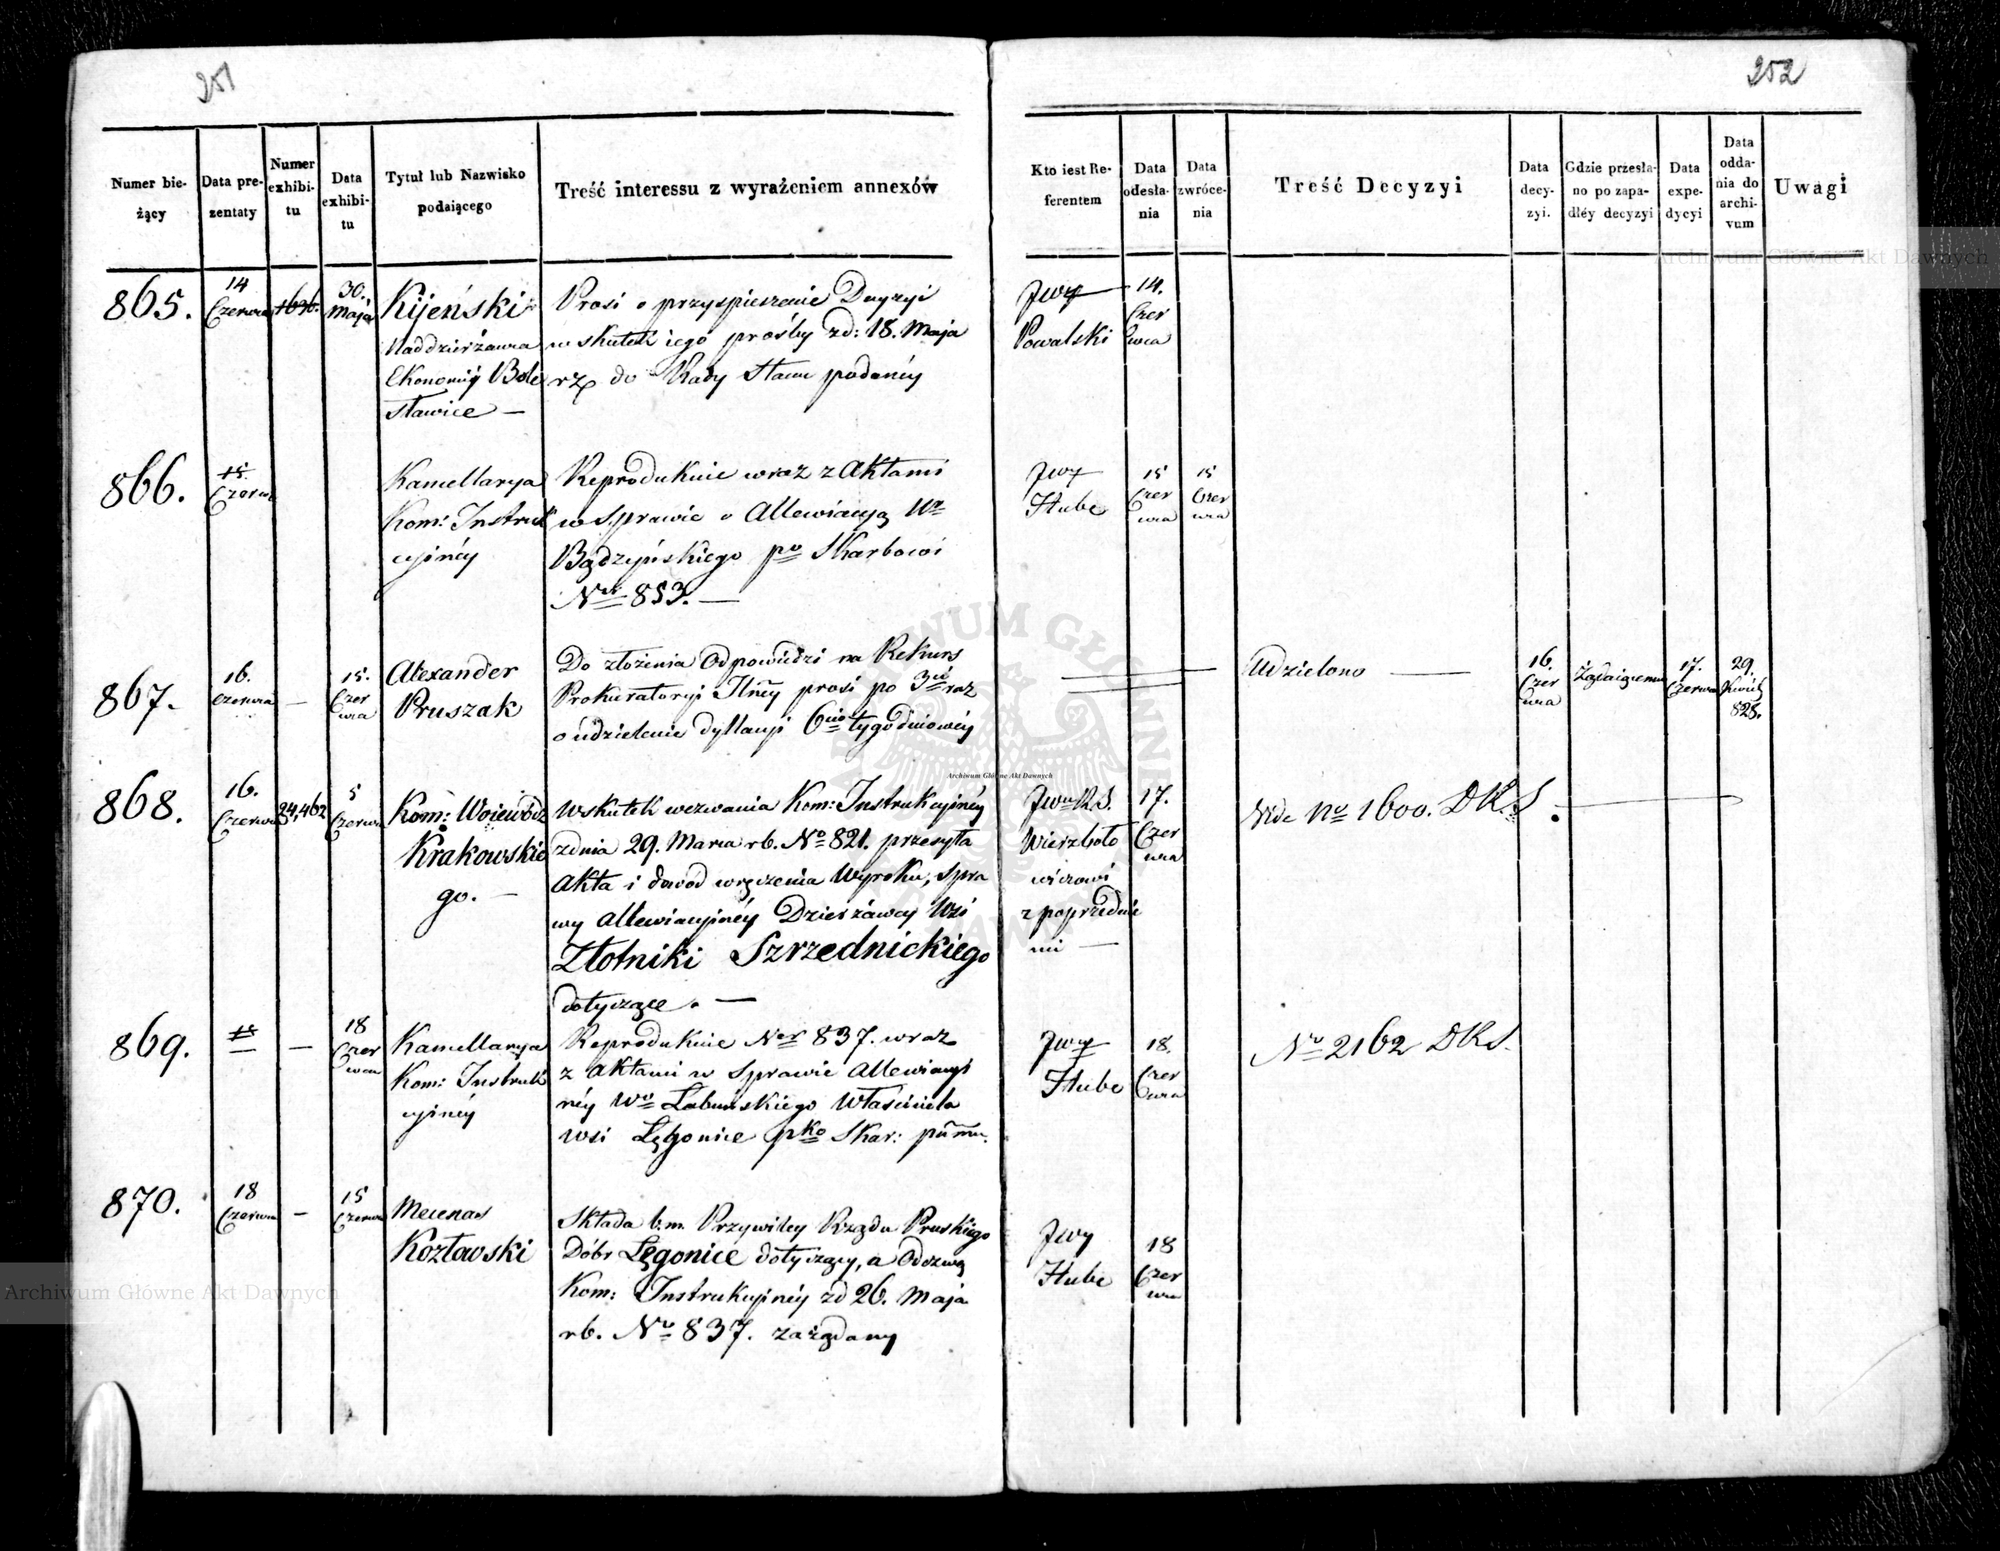 251
252
Numer bie-
żący
Data pre-
zentaty
Numer
exhibi-
tu
Data
exhibi-
tu
Tytuł lub Nazwisko
podaiącego
Treść interessu z wyrażeniem annexów
Kto iest Re-
ferentem
Data
odesła-
nia
Data
zwróce-
nia
Treść Decyzyi
Data
decy-
zyi.
Gdzie przesła-
no po zapa-
dłéy decyzyi
Data
expe-
dycyi
Data
odda-
nia do
archi-
vum
Uwagi
865.
14
Czerwca
1636.
30.
Maja
Kijeński
Naddzierżawca
Ekonomij Bole
sławice —
Prosi o przyspieszenie Decyzyi
w skutek iego prośby zd: 18. Maja
do Rady Stanu podanéy
Powalski
14.
Czer
wca
866.
15.
Czerwca
Kancellarya
Kom: Instruk
cyjnéy
Reprodukuie wraz z Aktami
w sprawie o Allewiacyą
Bądzyńskiego Skarbowi
Ner 853. —
Hube
15
Czer
wca
15
Czer
wca
867.
16.
Czerwca
—
15.
Czer
wca
Alexander
Pruszak
Do złożenia Odpowiedzi na Rekurs
Prokuratoryi prosi po raz
o udzielenie dyllacyi tygodniowéy
Udzielono —
16.
Czer
wca
Żądaiącemu
17.
Czerwca
29.
825.
868.
16.
Czerwca
24,462
5
Czerwca
Kom: Wojewódz
Krakowskie
go. —
W skutek wezwania Kom: Instrukcyjnéy
z dnia 29. Marca rb. No 821. przesyła
Akta i dowód wręczenia Wyroku, spra
wy allewiacyjnéy Dzierżawcy Wsi
Złotniki Szrzednickiego
dotyczące. —
Wierzboło
wiczowi
z poprzednie
mi —
17.
Czer
wca
Vide No 1600. DKS.
869.
—
18
Czer
wca
Kancellarya
Kom: Instruk
cyjnéy
Reprodukuie Ner 837. wraz
z Aktami w Sprawie Allewiacyi
néy Wo Łabuńskiego Właściciela
Wsi Łęgonice pko Skar:
Hube
18.
Czer
wca
No 2162 DKS.
870.
18
Czerwca
—
15
Czerwca
Mecenas
Kozłowski
Składa Przywiley Rządu Pruskiego
Dóbr Łęgonice dotyczący, a Odezwą
Kom: Instrukcyjnéy zd 26. Maja
rb. No 837. zażądany
Hube
18
Czer
wca
Archiwum Główne Akt Dawnych
Archiwum Główne Akt Dawnych
Archiwum Główne Akt Dawnych